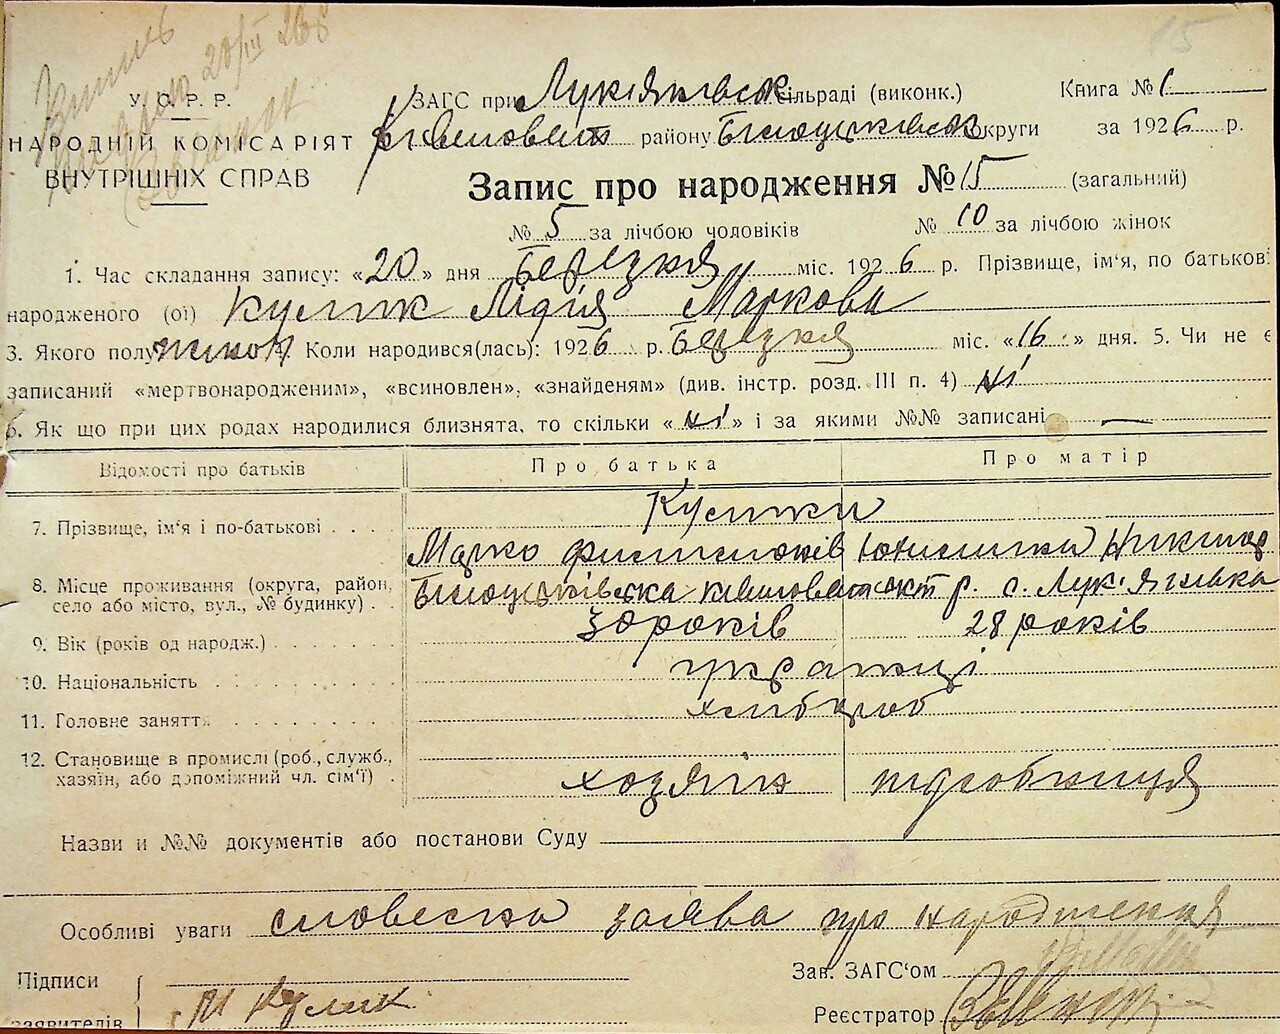 15
20/III 26
У. С. Р. Р.
НАРОДНІЙ КОМІСАРІЯТ
ВНУТРІШНІХ СПРАВ
ЗАГС при Лукіянівськ сільраді (виконк.) Книга № 1
району Білоцерківськ округи за 1926 р.
Запис про народження № 15 (загальний)
№ 5 за лічбою чоловіків № 10 за лічбою жінок
1. Час складання запису: «20» дня Березня міс. 1926 р. Прізвище, ім'я, по батькові
народженого (ої) Кулик Лідія Маркова
3. Якого полу жіноч 4. Коли народився(лась): 1926 р. Березня міс. «16» дня. 5. Чи не є
записаний «мертвонародженим», «всиновлен», «знайденям» (див. інстр. розд. III п. 4) ні
6. Як що при цих родах народилися близнята, то скільки «ні» і за якими №№ записані —
Відомості про батьків Про батька Про матір
7. Прізвище, ім'я і по-батькові . . . Кулики
Марко
8. Місце проживання (округа, район, село або місто, вул., № будинку) . . Білоцерківська р. с. Лук'янівка
9. Вік (років од народж.) . . . . . . . 30 років 28 років
10. Національність . . . . . . . . . українці
11. Головне заняття . . . . . . . . . хлібороб
12. Становище в промислі (роб., служб., хазяїн, або допоміжний чл. сім'ї) . хозяїн
Назви и №№ документів або постанови Суду
Особливі уваги словесна заява про народження
Підписи Зав. ЗАГС'ом
заявителів М Кулик Реєстратор